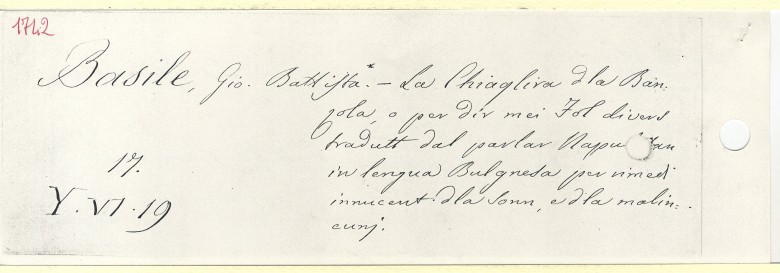 1742
Basile, Gio. Battista.* – La Chiaglira dla Ban:
zola, o per dir mei Fol divers
tradutt dal parlar Napu tan
in lengua Bulgnesa per rimedi
innucent dla sonn, e dla malin:
cunj.
17.
Y.VI.19